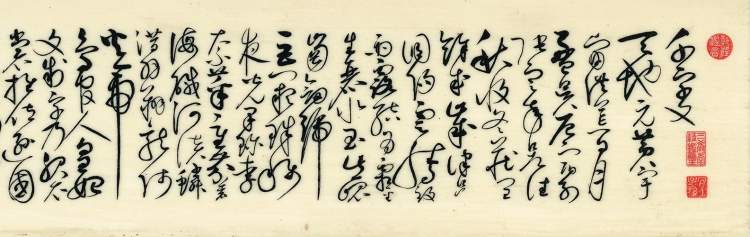 千字文
天地元黃宇
宙洪荒日月
盈昃辰宿列
張寒來暑往
秋收冬藏閏
餘成歲律呂
調陽雲騰致
雨露結為霜金
生麗水玉出崑
崗劍號
巨闕珠稱
夜光果珍李
柰菜重芥薑
海鹹河淡鱗
潛羽翔龍師
火帝
鳥官人皇始
文制字乃服衣
裳推位遜國